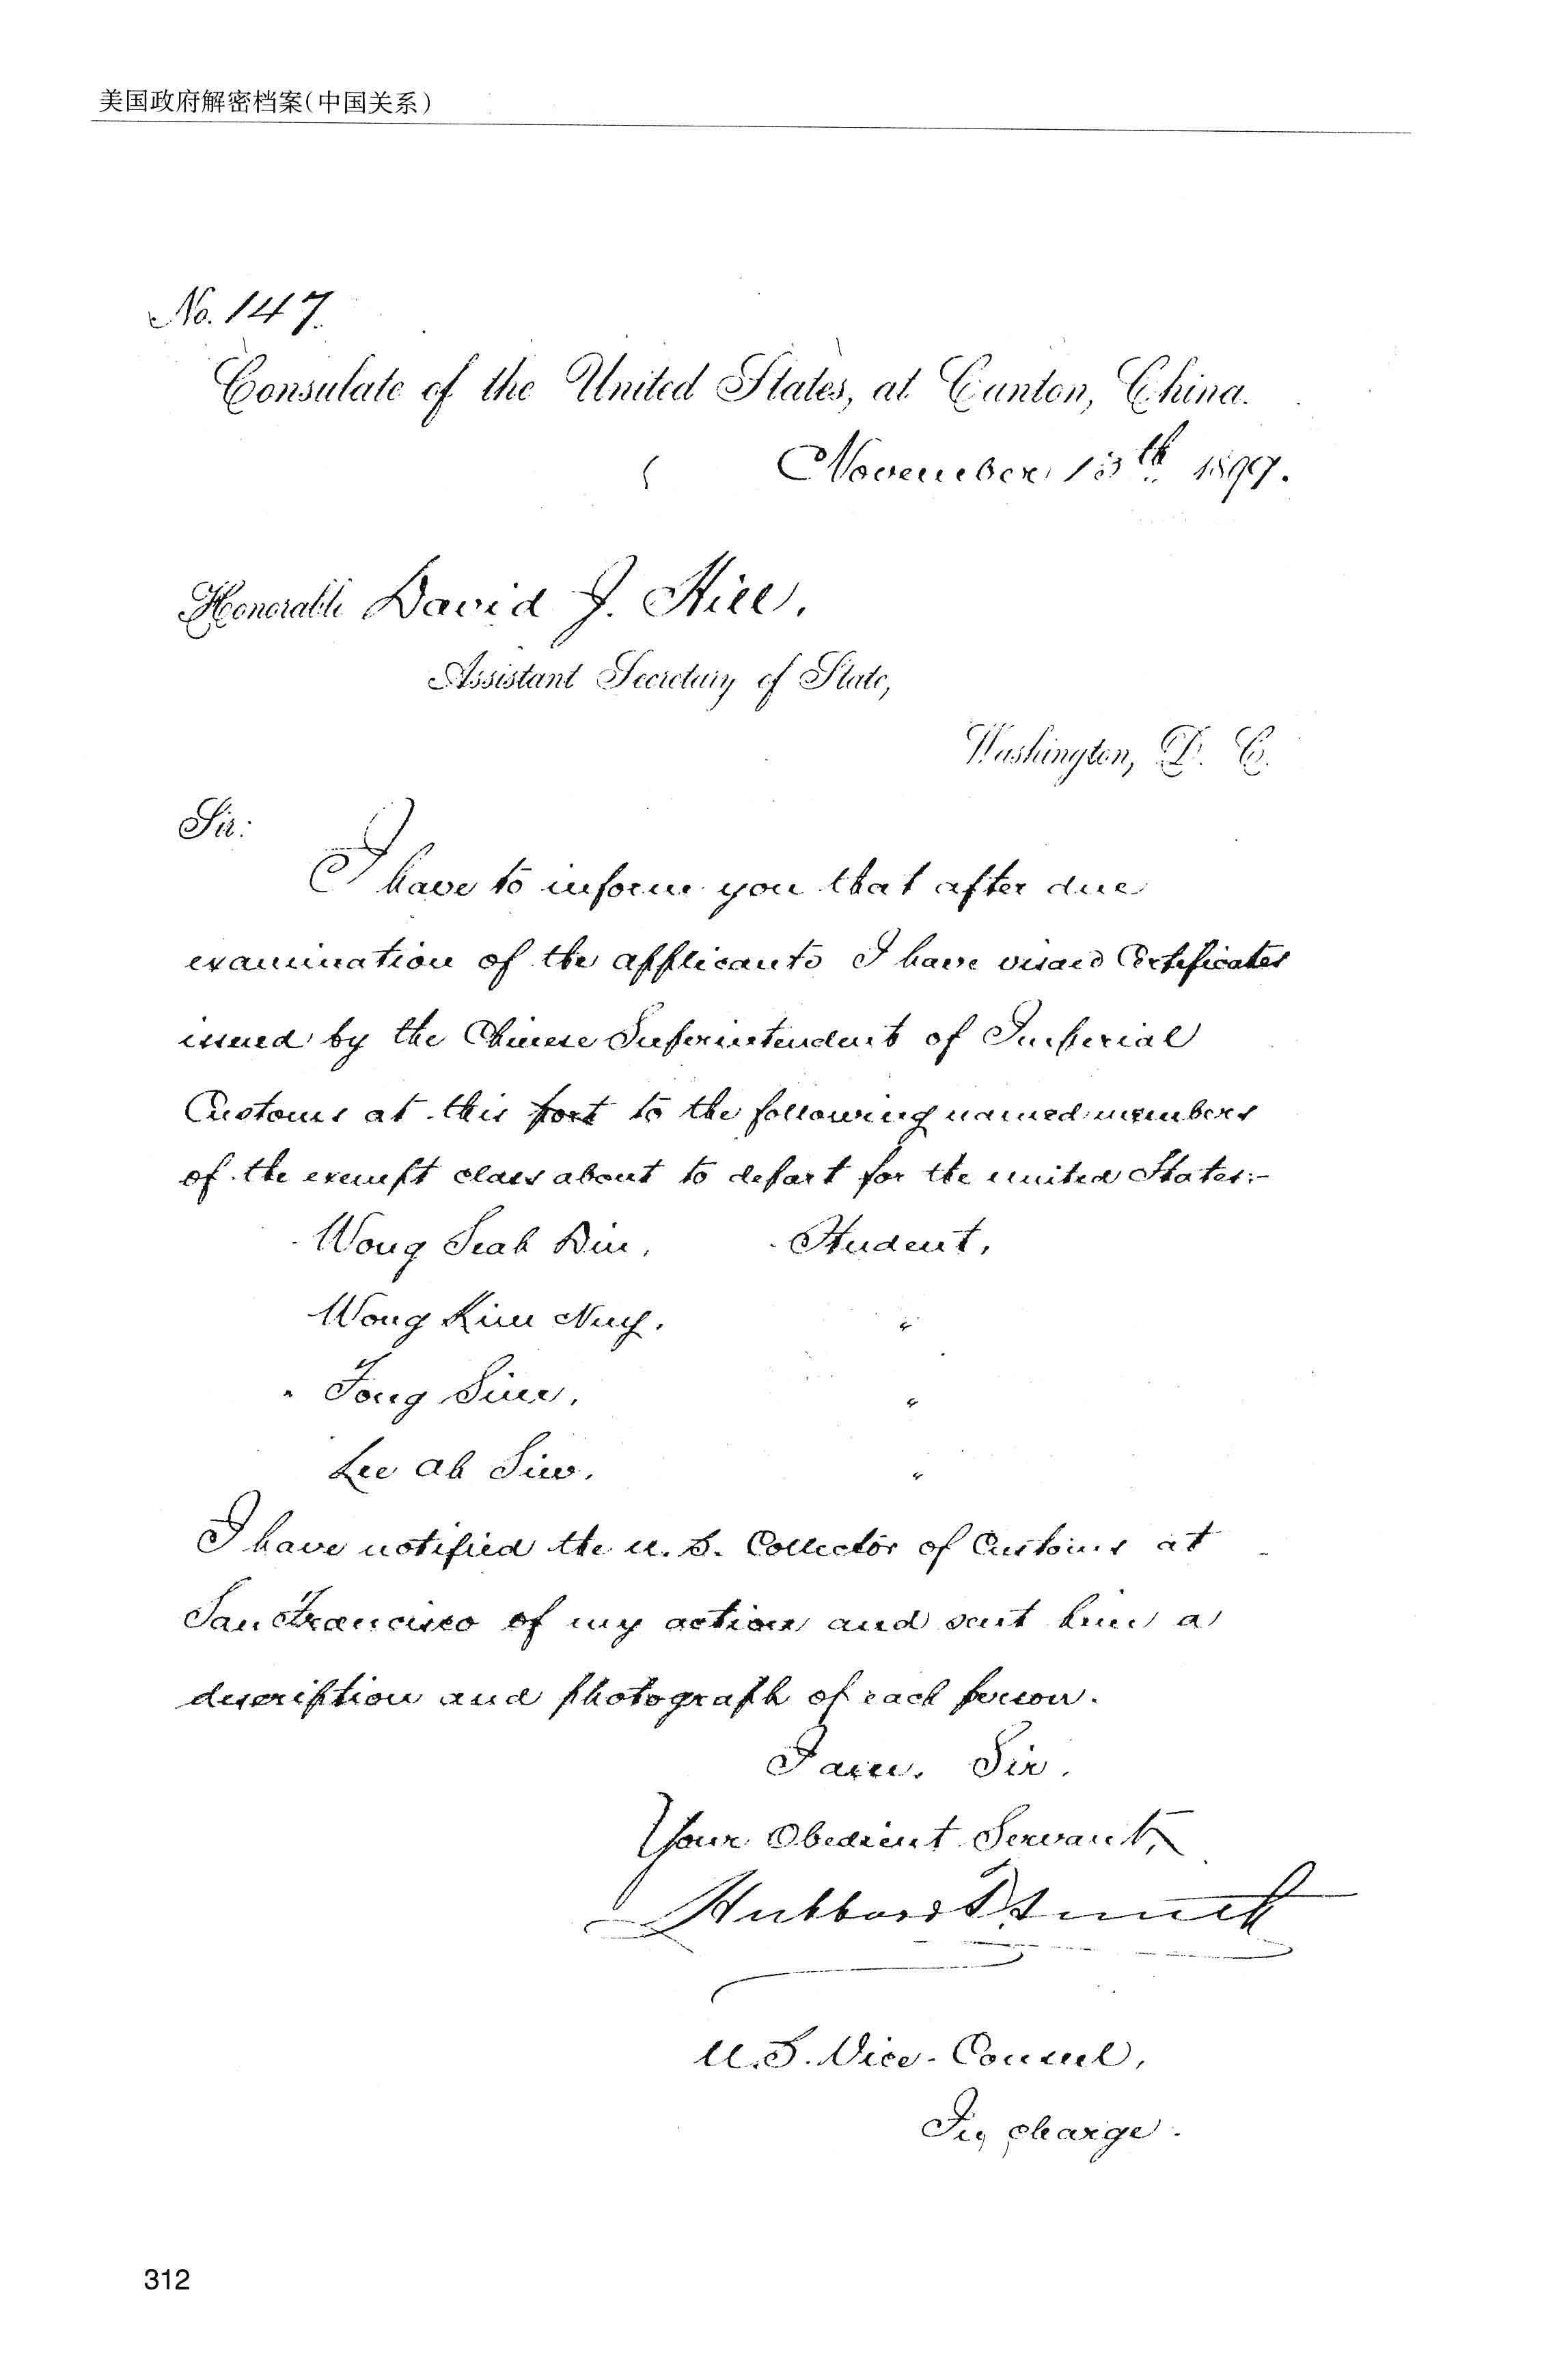 美国政府解密档案(中国关系)
No. 147.
Consulate of the United States, at Canton, China.
November 13th 1899.
Honorable David J. Hill,
Assistant Secretary of State,
Washington, D. C.
Sir:
I have to inform you that after due
examination of the applicants I have visaed Certificates
issued by the Chinese Superintendent of Imperial
Customs at this port to the following named members
of the exempt class about to depart for the United States:-
Wong Seah Bin, Student,
Wong Kim Nuy. "
Fong Sim, "
Lee Ah Siw. "
I have notified the U. S. Collector of Customs at
San Francisco of my action and sent him a
description and photograph of each person.
I am, Sir,
Your Obedient Servant,
Hubbard T. Smith
U. S. Vice-Consul,
In charge.
312